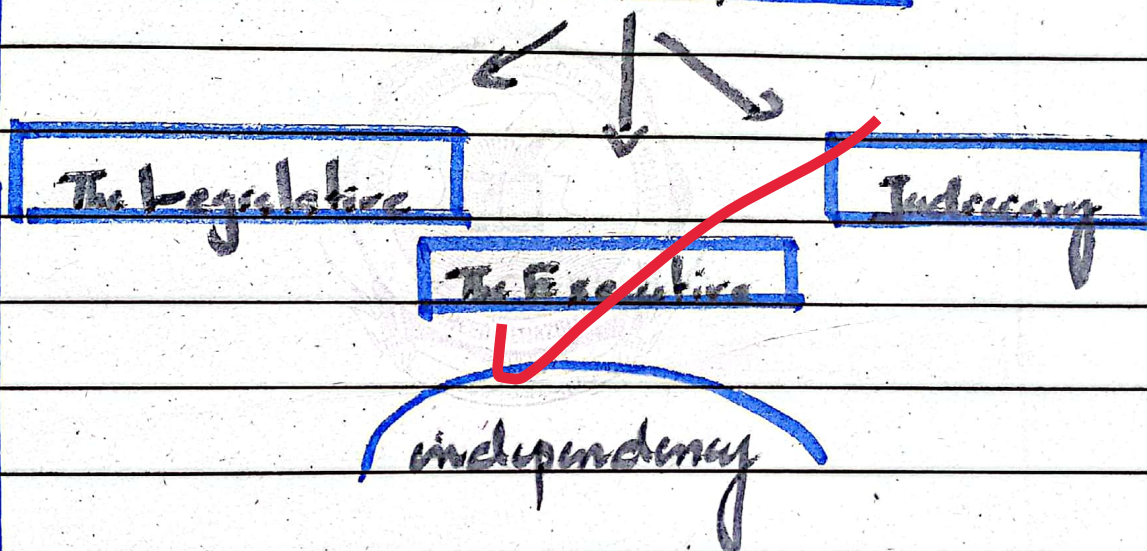 The Legislative
Judiciary
The Executive
independency